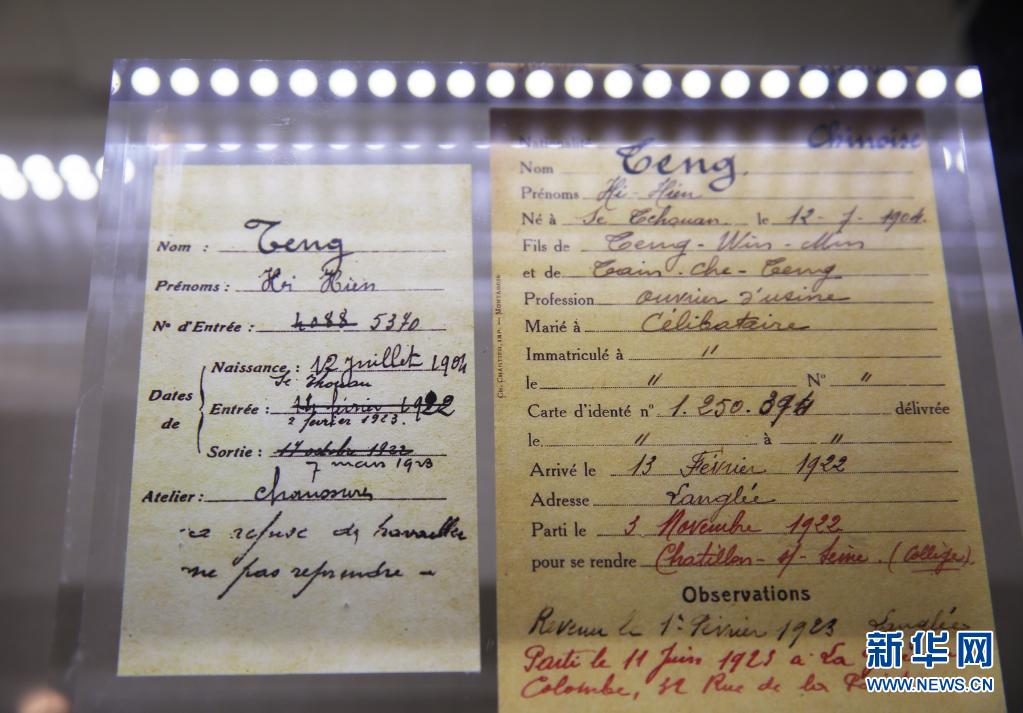 Nom : Teng
Prénoms : Hi Hien
No d'Entrée : 4088 5370
Naissance : 12 Juillet 1904
Se Tchouan
Dates
de
Entrée : 14 février 1922
2 février 1923.
Sortie : 17 octobre 1922
7 mars 1923
Atelier : chaussures
a refusé de travailler
ne pas reprendre -
Nationalité Chinoise
Nom Teng.
Prénoms Hi-Hien
Né à Se Tchouan le 12-7-1904.
Fils de Teng-Win-Min
et de Tain-Che-Teng
Profession ouvrier d'usine
Marié à Célibataire
Immatriculé à "
le " No "
Carte d'identé no 1.250.394 délivrée
le " à "
Arrivé le 13 Février 1922
Adresse Langlée
Parti le 3 Novembre 1922
pour se rendre Chatillon-s/-Seine. (Collège).
Observations
Revenu le 1er Février 1923 Langlée
Parti le 11 Juin 1923 à La
Colombe, 32 Rue de la
CH. CHARTIER, IMP. — MONTARGIS
新华网
WWW.NEWS.CN